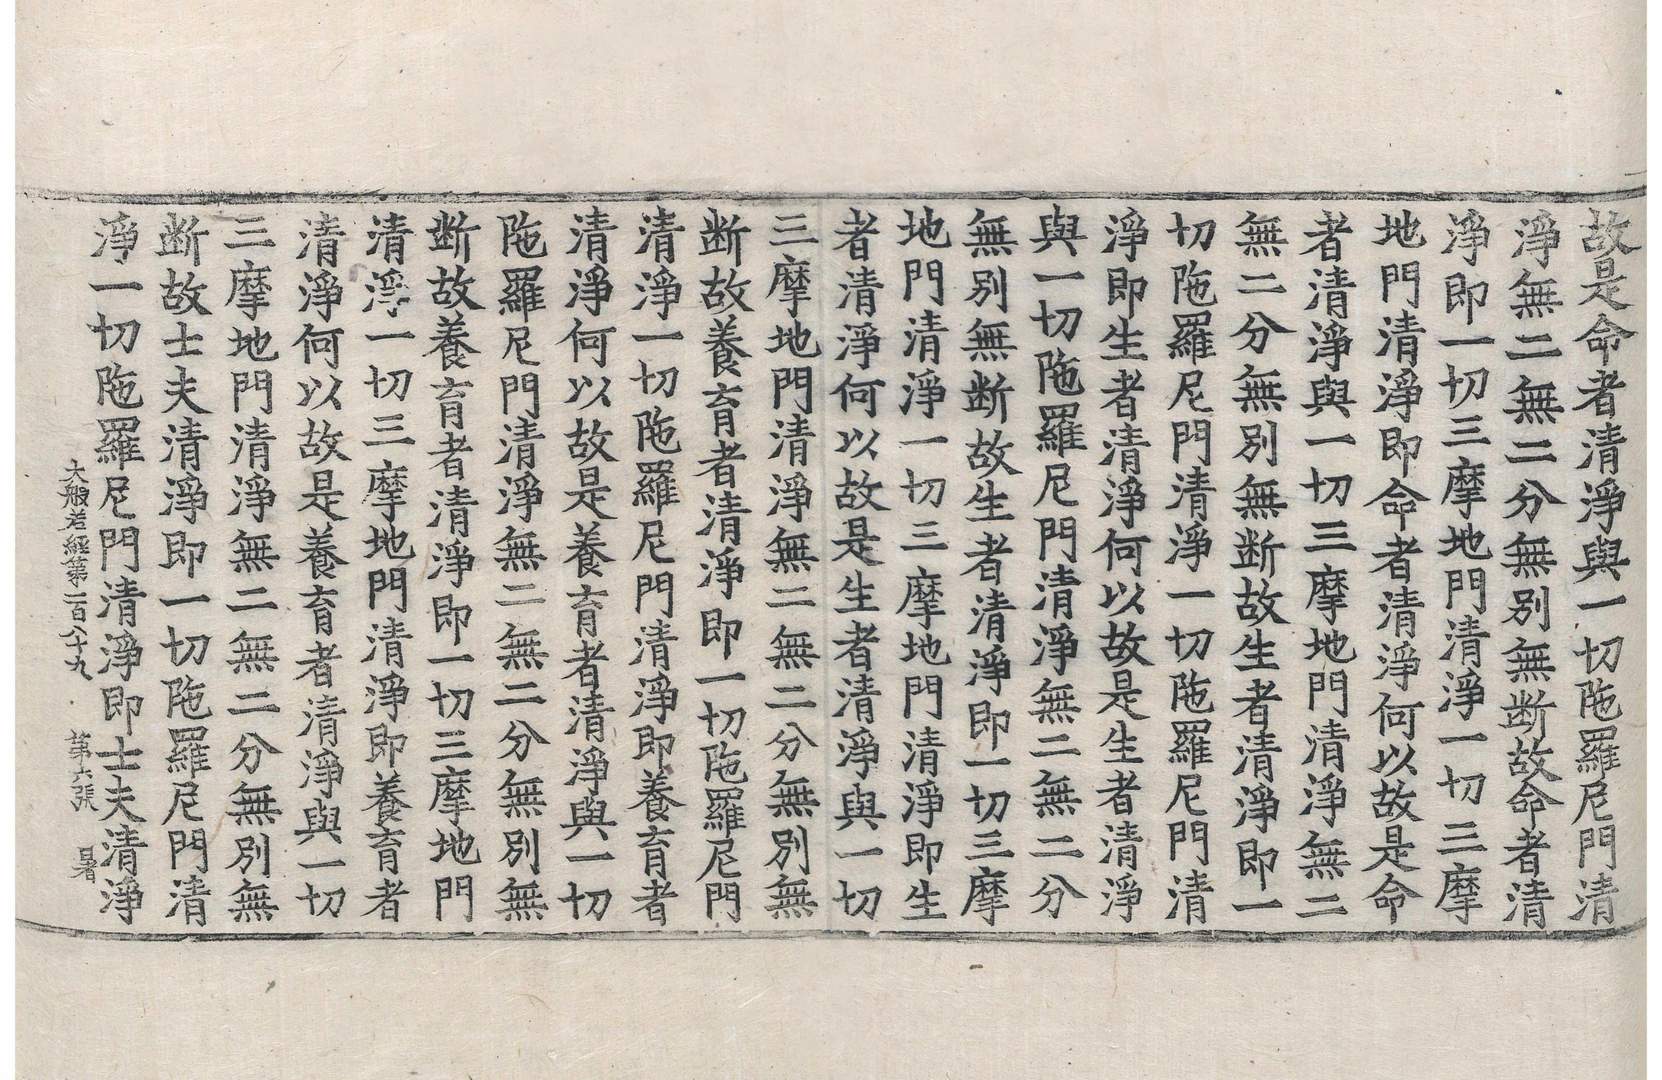 故是命者清淨與一切陁羅尼門清
淨無二無二分無別無断故命者清
淨即一切三摩地門清淨一切三摩
地門清淨即命者清淨何以故是命
者清淨與一切三摩地門清淨無二
無二分無別無断故生者清淨即一
切陁羅尼門清淨一切陁羅尼門清
淨即生者清淨何以故是生者清淨
與一切陁羅尼門清淨無二無二分
無別無断故生者清淨即一切三摩
地門清淨一切三摩地門清淨即生
者清淨何以故是生者清淨與一切
三摩地門清淨無二無二分無別無
断故養育者清淨即一切陁羅尼門
清淨一切陁羅尼門清淨即養育者
清淨何以故是養育者清淨與一切
陁羅尼門清淨無二無二分無別無
断故養育者清淨即一切三摩地門
清淨一切三摩地門清淨即養育者
清淨何以故是養育者清淨與一切
三摩地門清淨無二無二分無別無
断故士夫清淨即一切陁羅尼門清
淨一切陁羅尼門清淨即士夫清淨
大般若經第一百八十九 第六張 暑